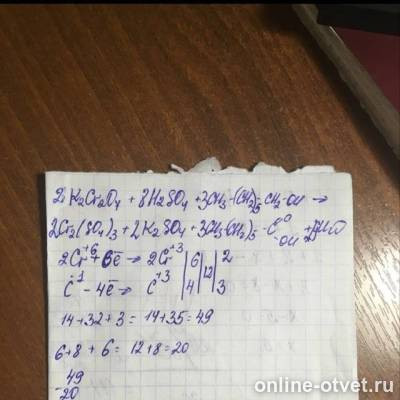 2K₂Cr₂O₄ + 8H₂SO₄ + 3CH₃-(CH₂)₅-CH₂-OH →
2Cr₂(SO₄)₃ + 2K₂SO₄ + 3CH₃(CH₂)₅-C O -OH +
2Cr⁺⁶ + 6ē → 2Cr⁺³ | 6 | 12 | 2
C⁻¹ - 4ē → C⁺³ | 4 | | 3
14+32+3 = 14+35 = 49
6+8+6 = 12+8 = 20
49
-20
online-otvet.ru